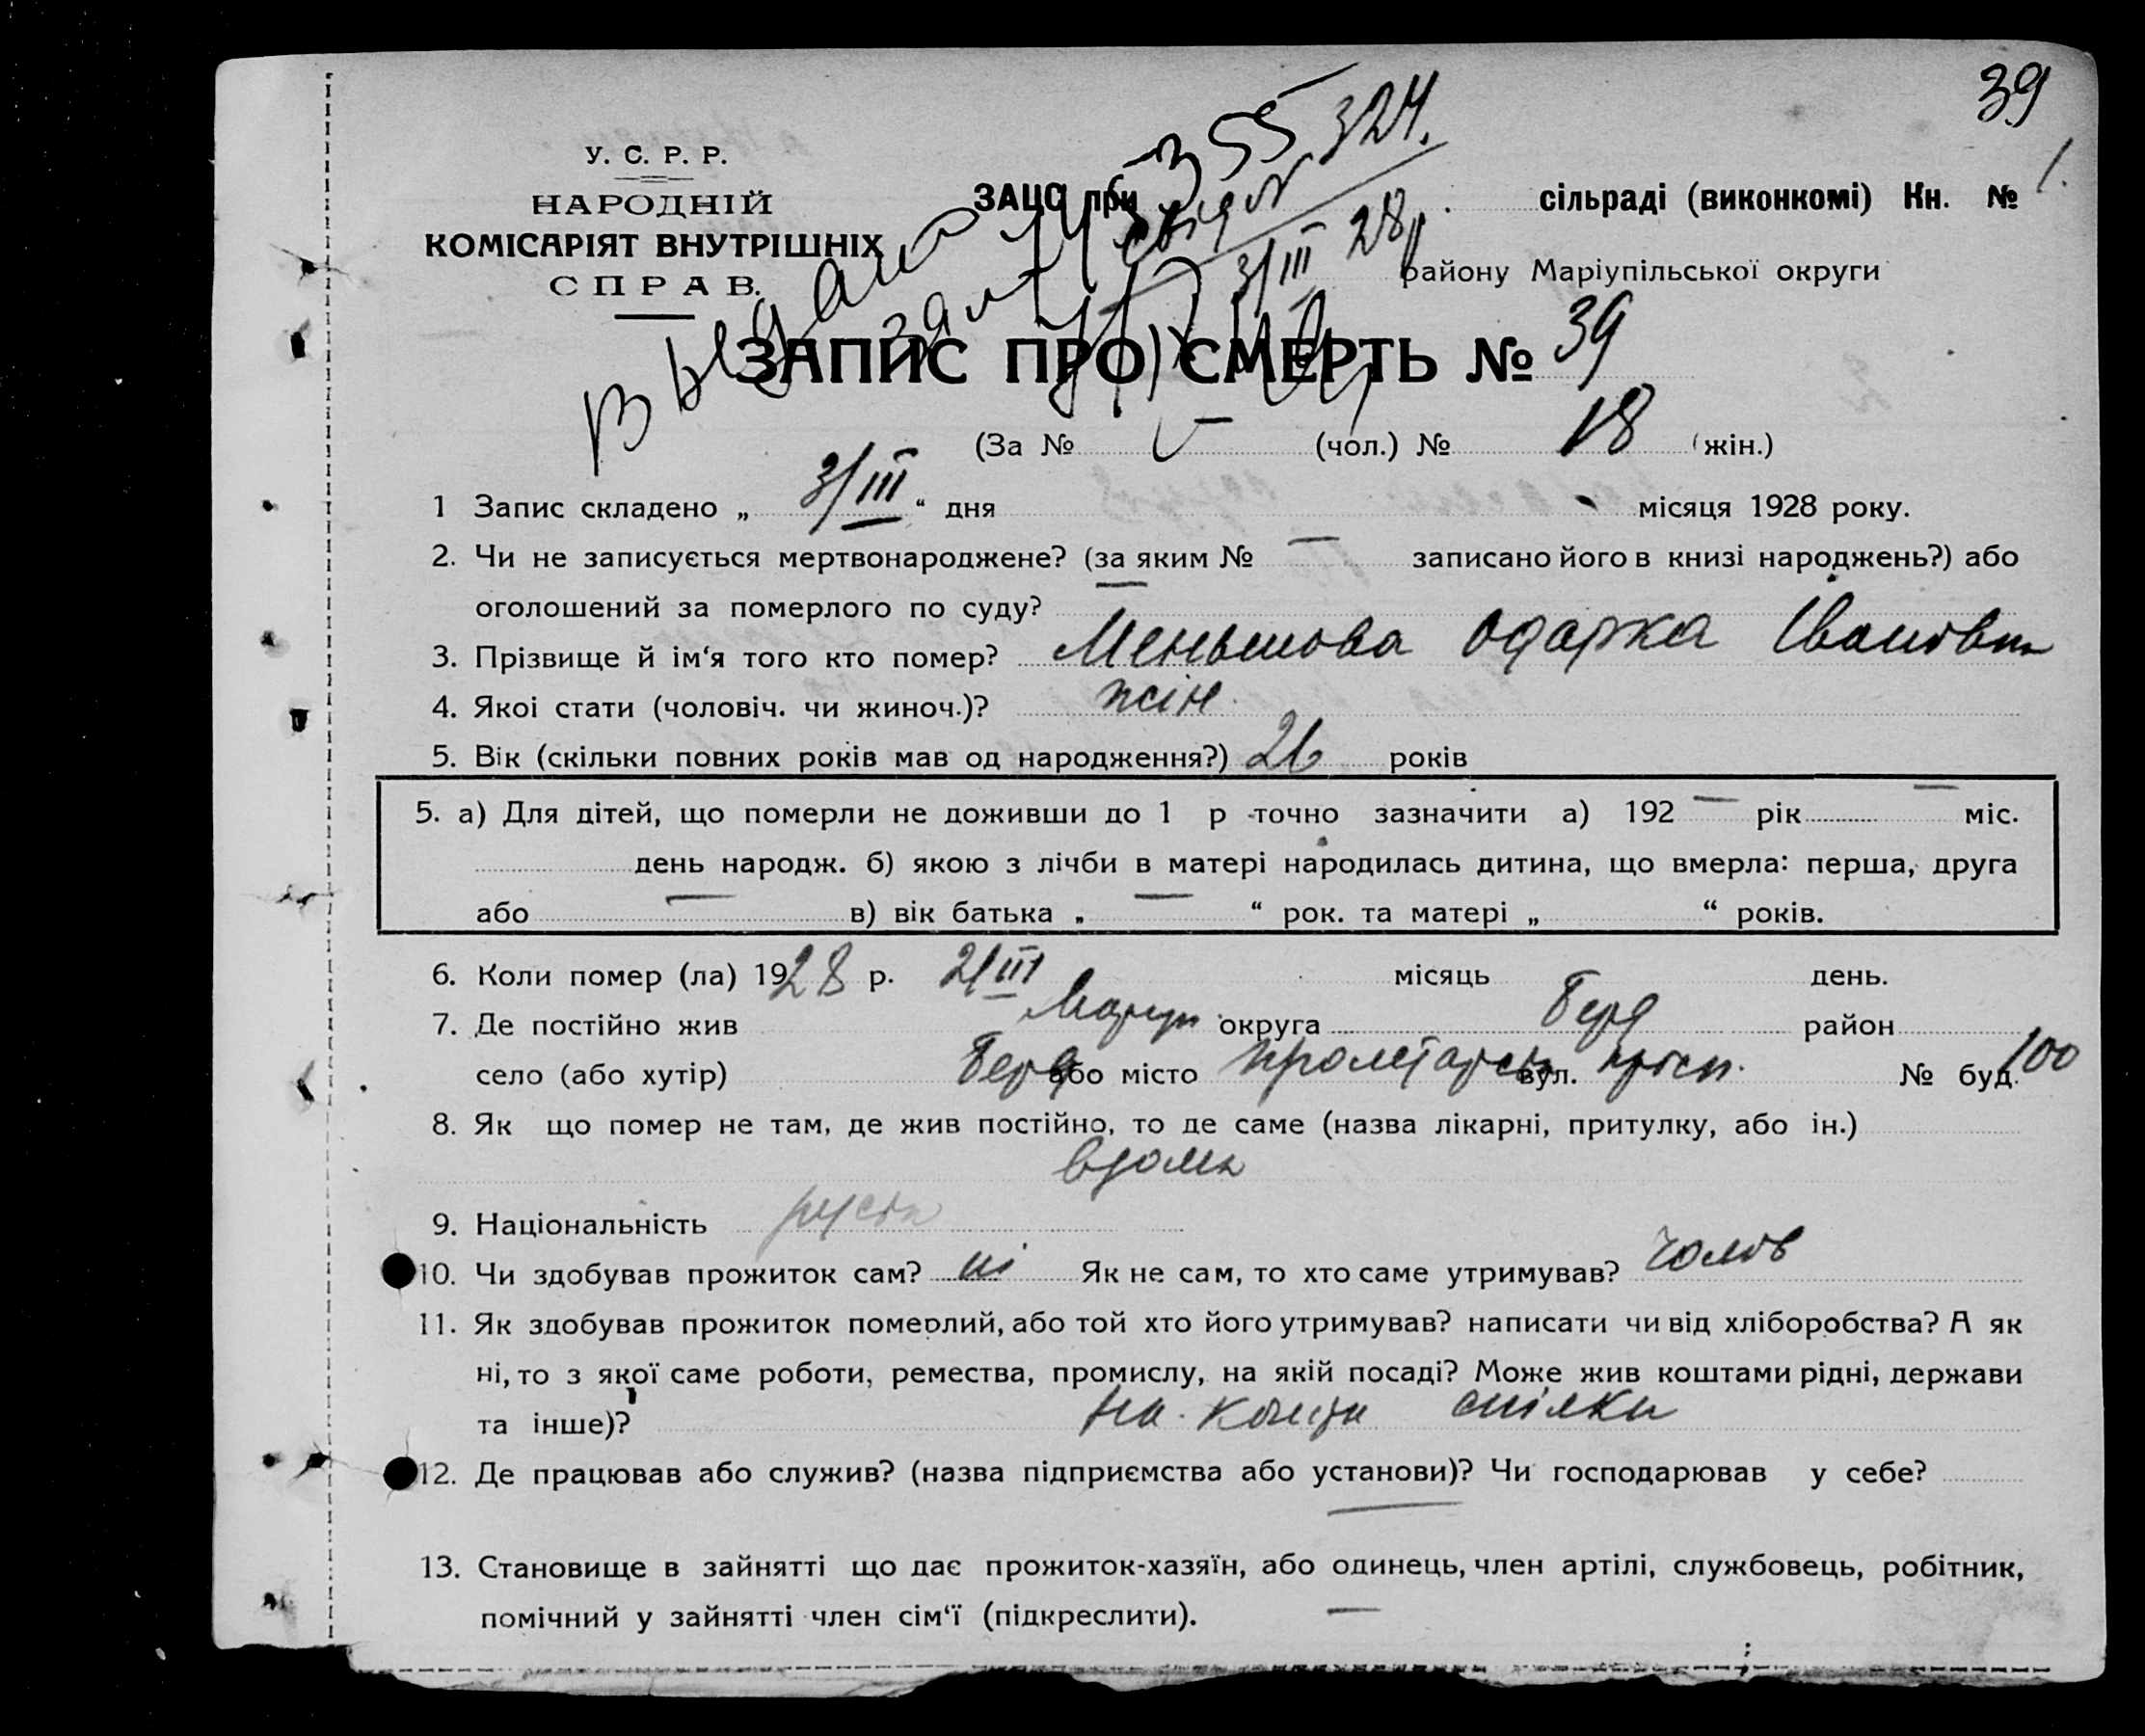 39
У. С. Р. Р.
НАРОДНІЙ
КОМІСАРІЯТ ВНУТРІШНІХ
СПРАВ.
355 324.
ЗАЦС при сільраді (виконкомі) Кн. № 1.
3/III 28р.
району Маріупільської округи
ЗАПИС ПРО СМЕРТЬ № 39
(За № — (чол.) № 18 (жін.)
1 Запис складено „ 3/III “ дня місяця 1928 року.
2. Чи не записується мертвонароджене? (за яким № — записано його в книзі народжень?) або
оголошений за померлого по суду? —
3. Прізвище й ім‘я того кто помер? Меньшова Одарка Івановн
4. Якоі стати (чоловіч. чи жиноч.)? жін.
5. Вік (скільки повних років мав од народження?) 26 років
5. а) Для дітей, що померли не доживши до 1 р точно зазначити а) 192 — рік — міс.
день народж. б) якою з лічби в матері народилась дитина, що вмерла: перша, друга
або — в) вік батька „ — “ рок. та матері „ “ років.
6. Коли помер (ла) 1928 р. 2/III місяць день.
7. Де постійно жив Маріуп округа Берд район
село (або хутір) Берд або місто Пролетарськ вул. просп. № буд. 100
8. Як що помер не там, де жив постійно, то де саме (назва лікарні, притулку, або ін.)
вдома
9. Національність руська
10. Чи здобував прожиток сам? ні Як не сам, то хто саме утримував? чолов
11. Як здобував прожиток померлий, або той хто його утримував? написати чи від хліборобства? А як
ні, то з якої саме роботи, ремества, промислу, на якій посаді? Може жив коштами рідні, держави
та інше)? на кошти спілки
12. Де працював або служив? (назва підприємства або установи)? Чи господарював у себе?
—
13. Становище в зайнятті що дає прожиток-хазяїн, або одинець, член артілі, службовець, робітник,
помічний у зайнятті член сім‘ї (підкреслити). —